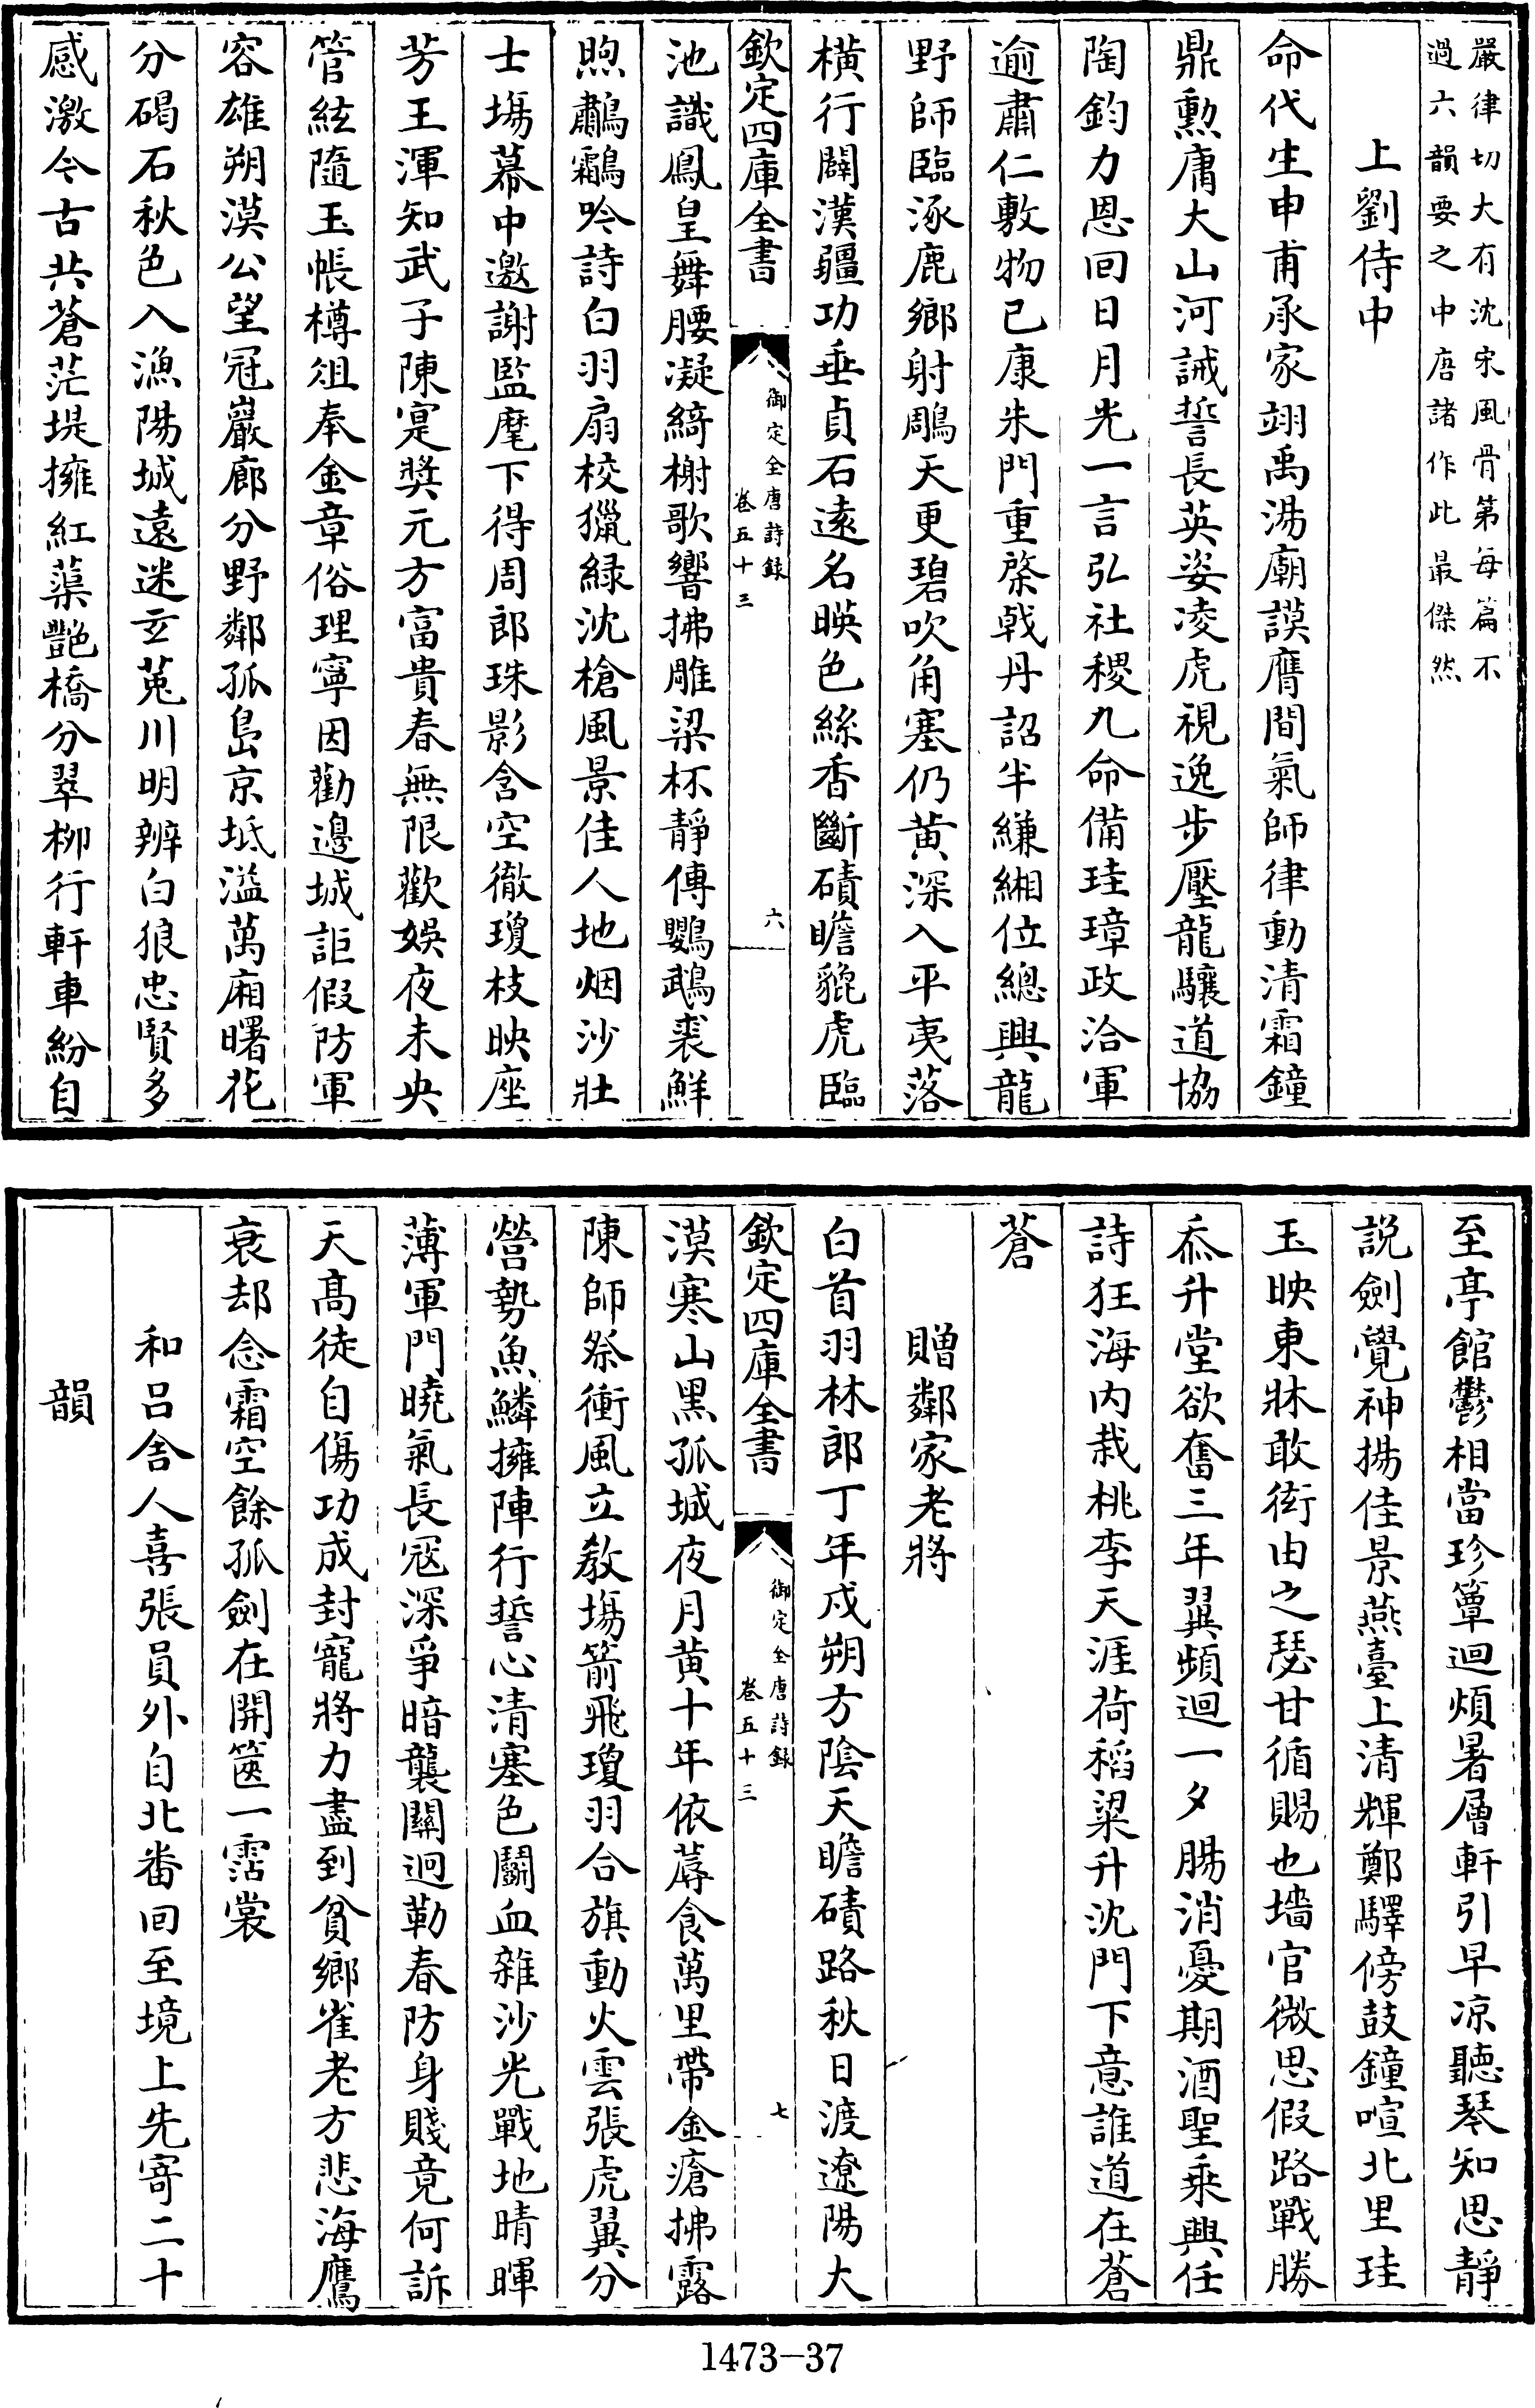 嚴律切大有沈宋風骨第每篇不
過六韻要之中唐諸作此最傑然
上劉侍中
命代生申甫承家翊禹湯廟謨膺間氣師律動清霜鐘
鼎勲庸大山河誡誓長英姿凌虎視逸步壓龍驤道協
陶鈞力恩回日月光一言弘社稷九命備珪璋政洽軍
逾肅仁敷物已康朱門重棨戟丹詔半縑緗位總興龍
野師臨涿鹿鄉射鵰天更碧吹角塞仍黄深入平夷落
橫行闢漢疆功垂貞石遠名暎色絲香斷磧瞻貔虎臨
欽定四庫全書
御定全唐詩錄
卷五十三
六
池識鳳皇舞腰凝綺榭歌響拂雕梁杯靜傳鸚鵡裘鮮
煦鷫鸘吟詩白羽扇校獵緑沈槍風景佳人地烟沙壯
士塲幕中邀謝監麾下得周郎珠影含空徹瓊枝映座
芳王渾知武子陳寔奬元方富貴春無限歡娯夜未央
管絃隨玉帳樽俎奉金章俗理寧因勸邊城詎假防軍
容雄朔漠公望冠巖廊分野鄰孤島京坻溢萬廂曙花
分碣石秋色入漁陽城遠迷玄菟川明辨白狼忠賢多
感激今古共蒼茫堤擁紅蕖艷橋分翠栁行軒車紛自
至亭館鬱相當珍簟迴煩暑層軒引早凉聽琴知思靜
説劍覺神揚佳景燕臺上清輝鄭驛傍鼓鐘喧北里珪
玉映東牀敢衒由之瑟甘循賜也墻官微思假路戰勝
忝升堂欲奮三年翼頻迴一夕腸消憂期酒聖乘興任
詩狂海内栽桃李天涯荷稻粱升沈門下意誰道在蒼
蒼
贈鄰家老將
白首羽林郎丁年戍朔方陰天瞻磧路秋日渡遼陽大
欽定四庫全書
御定全唐詩錄
卷五十三
七
漠寒山黑孤城夜月黄十年依蓐食萬里帶金瘡拂露
陳師祭衝風立教塲箭飛瓊羽合旗動火雲張虎翼分
營勢魚鱗擁陣行誓心清塞色鬭血雜沙光戰地晴暉
薄軍門曉氣長寇深爭暗襲關迥勒春防身賤竟何訴
天高徒自傷功成封寵將力盡到貧鄉雀老方悲海鷹
衰却念霜空餘孤劍在開篋一霑裳
和吕舍人喜張員外自北番回至境上先寄二十
韻
1473-37